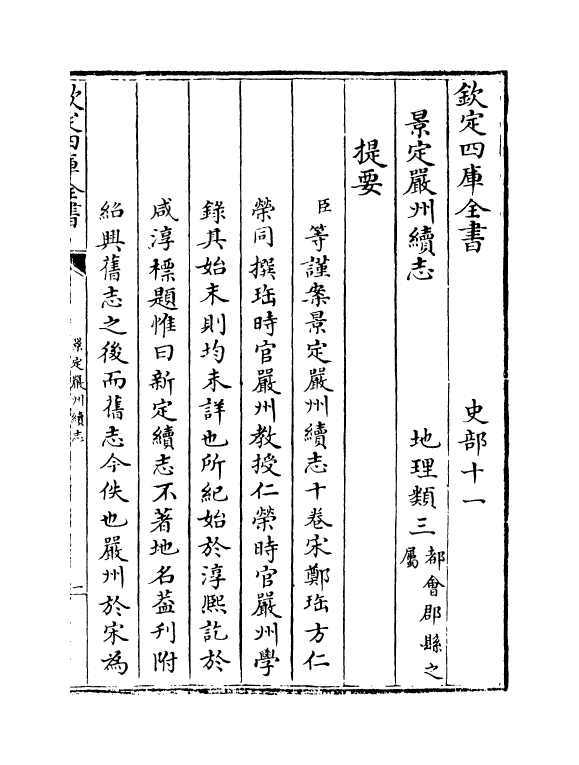 欽定四庫全書　史部十一
景定嚴州續志　地理類三都會郡縣之屬
提要
臣等謹案景定嚴州續志十卷宋鄭瑶方仁
榮同撰瑶時官嚴州教授仁榮時官嚴州學
錄其始末則均未詳也所紀始於淳熙訖於
咸淳標題惟曰新定續志不著地名葢刊附
紹興舊志之後而舊志今佚也嚴州於宋為
欽定四庫全書
景定嚴州續志
一